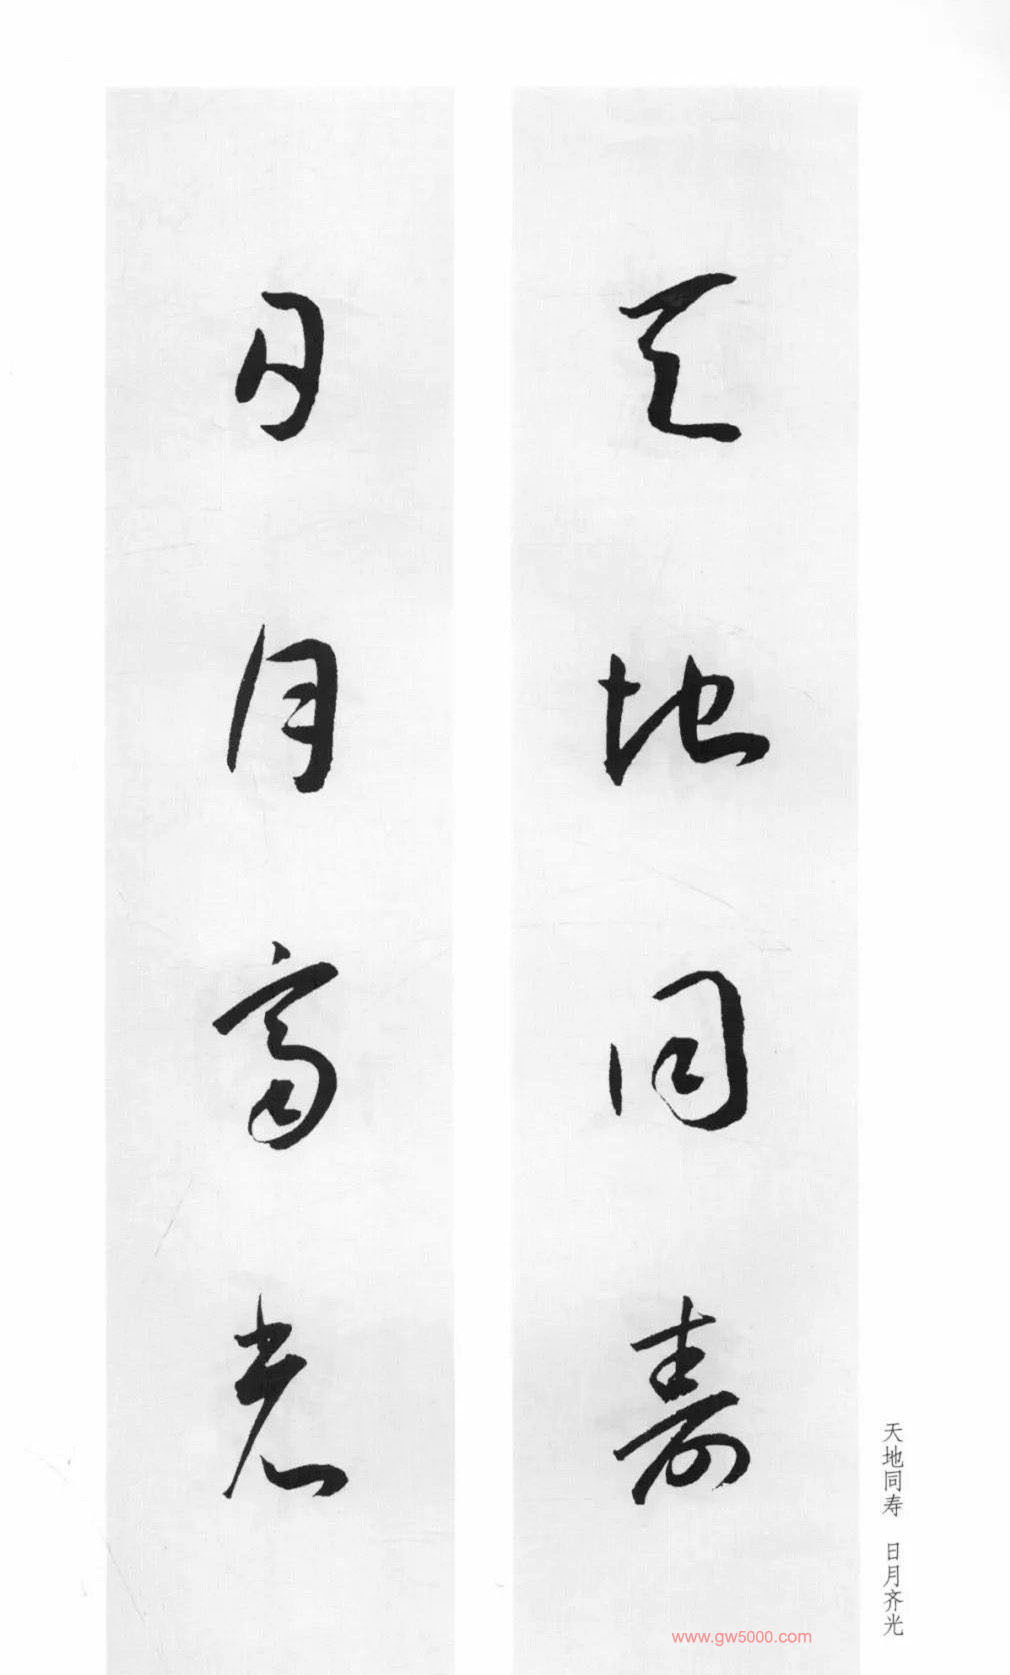 天地同寿
日月齐光
天地同寿 日月齐光
www.gw5000.com